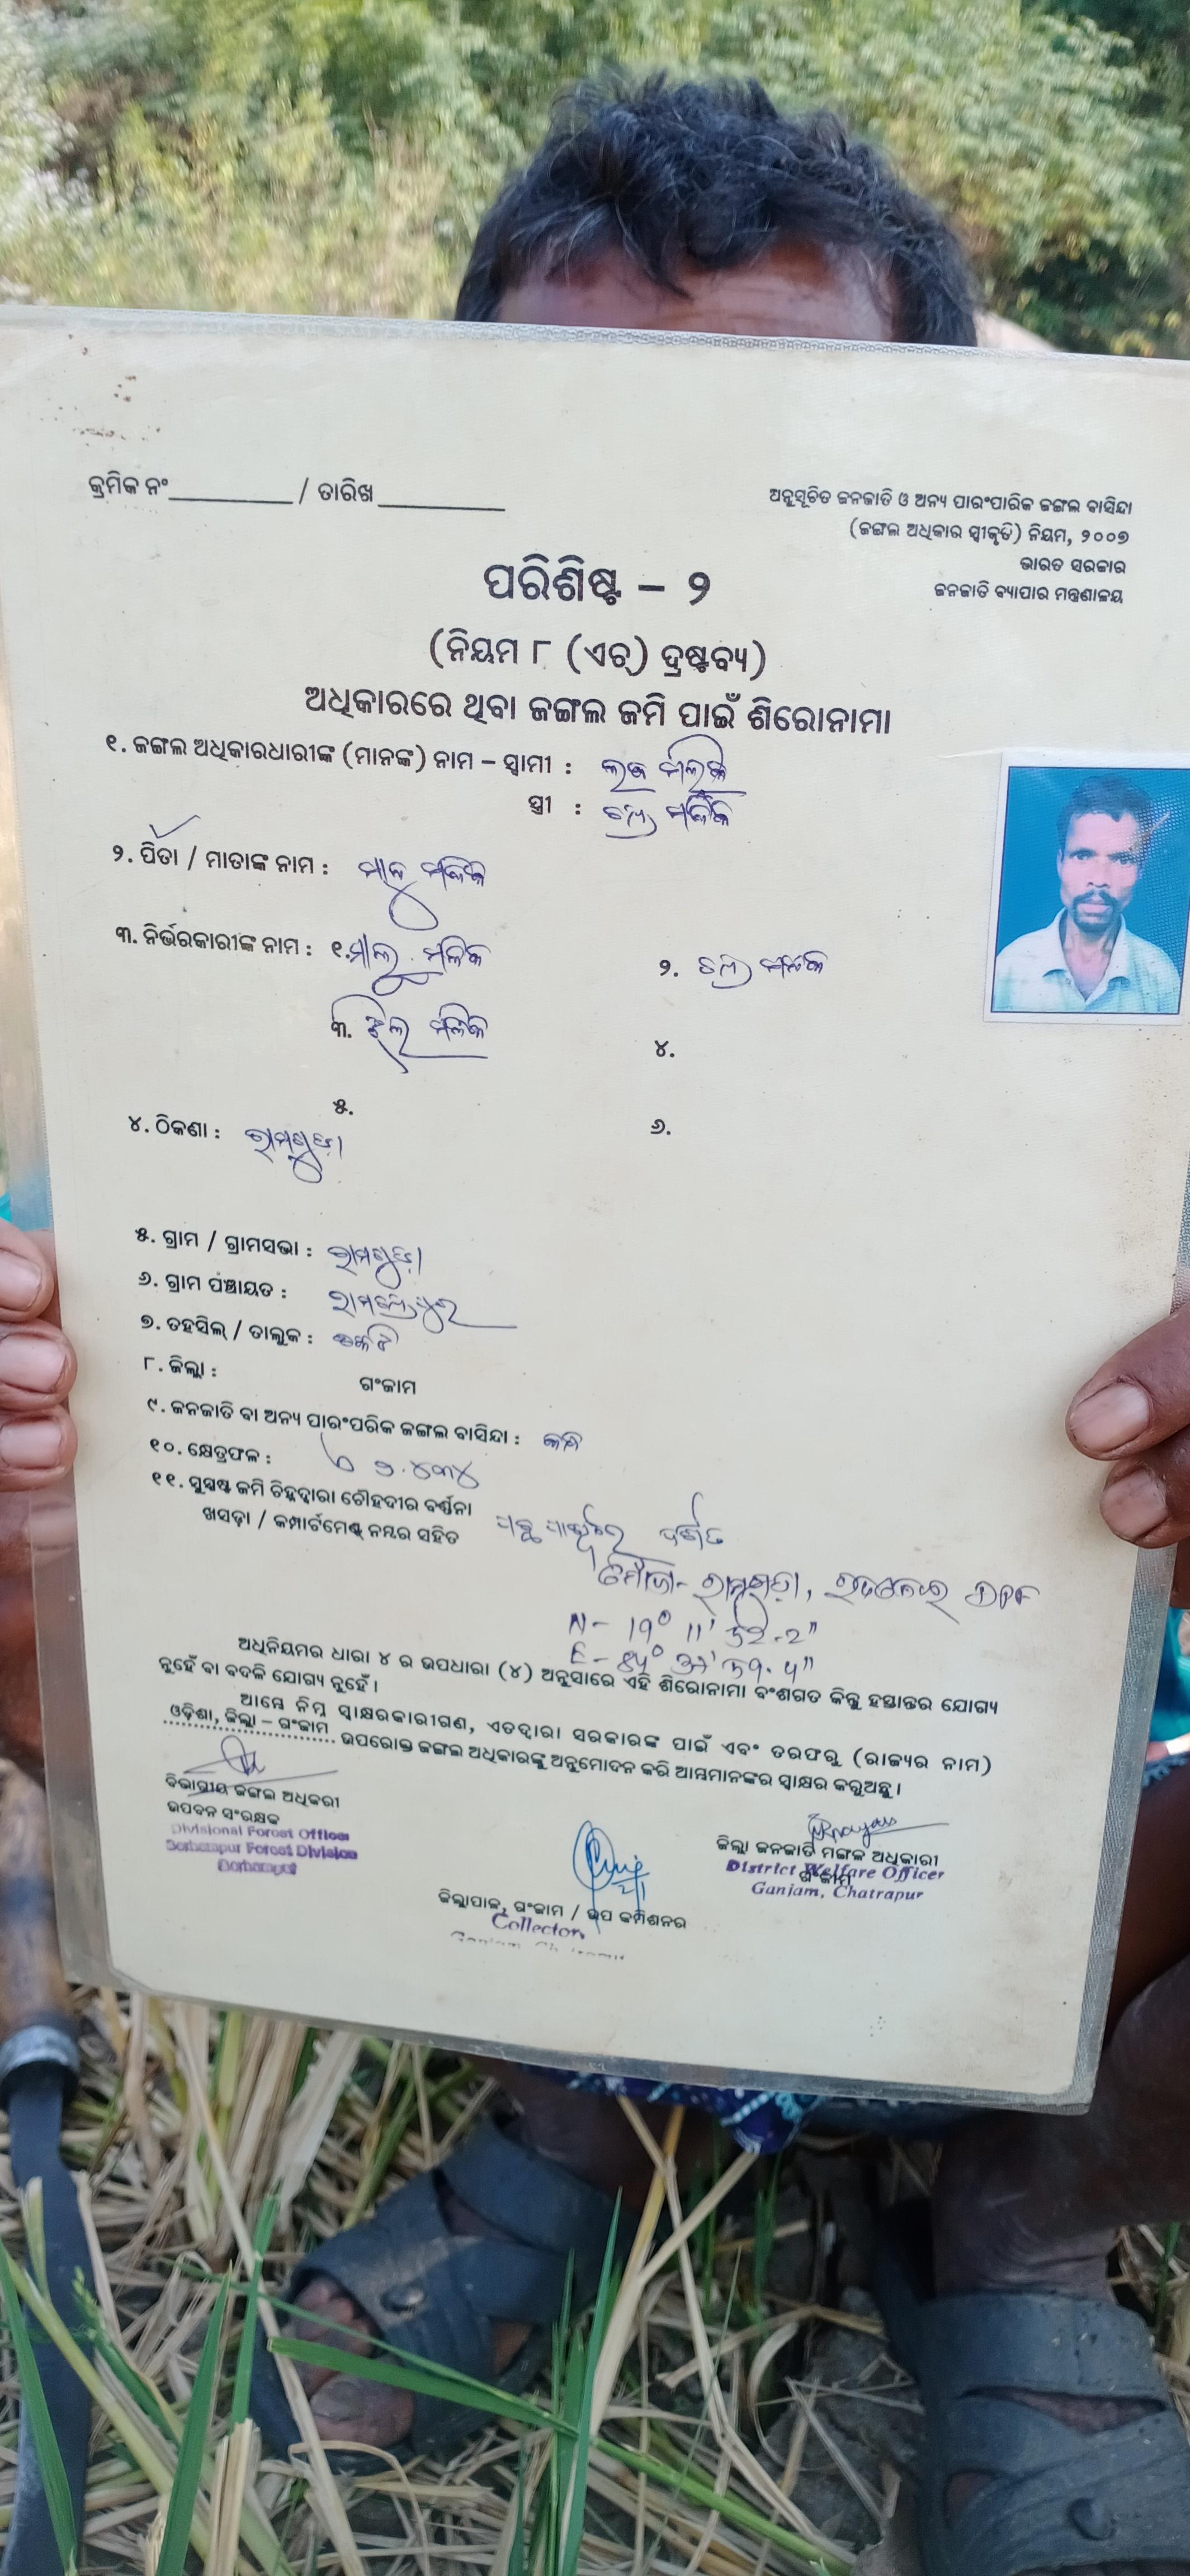 କ୍ରମିକ ନଂ__________ / ତାରିଖ__________
ଅନୁସୂଚିତ ଜନଜାତି ଓ ଅନ୍ୟ ପାରଂପାରିକ ଜଙ୍ଗଲ ବାସିନ୍ଦା
(ଜଙ୍ଗଲ ଅଧିକାର ସ୍ୱୀକୃତି) ନିୟମ, ୨୦୦୭
ଭାରତ ସରକାର
ଜନଜାତି ବ୍ୟାପାର ମନ୍ତ୍ରଣାଳୟ
ପରିଶିଷ୍ଟ – ୨
(ନିୟମ ୮ (ଏଚ୍) ଦ୍ରଷ୍ଟବ୍ୟ)
ଅଧିକାରରେ ଥିବା ଜଙ୍ଗଲ ଜମି ପାଇଁ ଶିରୋନାମା
୧. ଜଙ୍ଗଲ ଅଧିକାରଧାରୀଙ୍କ (ମାନଙ୍କ) ନାମ – ସ୍ୱାମୀ : ମଲିକ
ସ୍ତ୍ରୀ : ମଲିକ
୨. ପିତା / ମାତାଙ୍କ ନାମ : ମଲିକ
୩. ନିର୍ଭରକାରୀଙ୍କ ନାମ : ୧. ମାଲୁ ମଳିକ ୨. ମଲିକ
୩. ମଲିକ ୪.
୫. ୬.
୪. ଠିକଣା : ରାମଗୁଡ଼ା
୫. ଗ୍ରାମ / ଗ୍ରାମସଭା : ରାମଗୁଡ଼ା
୬. ଗ୍ରାମ ପଞ୍ଚାୟତ : ରାମଚନ୍ଦ୍ରପୁର
୭. ତହସିଲ୍ / ତାଲୁକ :
୮. ଜିଲ୍ଲା : ଗଂଜାମ
୯. ଜନଜାତି ବା ଅନ୍ୟ ପାରଂପରିକ ଜଙ୍ଗଲ ବାସିନ୍ଦା :
୧୦. କ୍ଷେତ୍ରଫଳ : ୪୩୪
୧୧. ସୁସ୍ପଷ୍ଟ ଜମି ଚିହ୍ନଦ୍ୱାରା ଚୌହଦୀର ବର୍ଣ୍ଣନା
ଖସଡ଼ା / କମ୍ପାର୍ଟମେଣ୍ଟ ନମ୍ବର ସହିତ ପଛ ପାର୍ଶ୍ୱରେ ଦର୍ଶିତ
ମୌଜା- ରାମଗୁଡ଼ା, DPF
N- 19° 11' 52.2"
E-
ଅଧିନିୟମର ଧାରା ୪ ର ଉପଧାରା (୪) ଅନୁସାରେ ଏହି ଶିରୋନାମା ବଂଶଗତ କିନ୍ତୁ ହସ୍ତାନ୍ତର ଯୋଗ୍ୟ
ନୁହେଁ ବା ବଦଳି ଯୋଗ୍ୟ ନୁହେଁ ।
ଆମ୍ଭେ ନିମ୍ନ ସ୍ୱାକ୍ଷରକାରୀଗଣ, ଏତଦ୍ୱାରା ସରକାରଙ୍କ ପାଇଁ ଏବଂ ତରଫରୁ (ରାଜ୍ୟର ନାମ)
ଓଡ଼ିଶା, ଜିଲ୍ଲା – ଗଂଜାମ ଉପରୋକ୍ତ ଜଙ୍ଗଲ ଅଧିକାରଙ୍କୁ ଅନୁମୋଦନ କରି ଆମ୍ଭମାନଙ୍କର ସ୍ୱାକ୍ଷର କରୁଅଛୁ ।
ବିଭାଗୀୟ ଜଙ୍ଗଲ ଅଧିକାରୀ
ଉପବନ ସଂରକ୍ଷକ
Divisional Forest Officer
Berhampur Forest Division
Berhampur
ଜିଲ୍ଲା ଜନଜାତି ମଙ୍ଗଳ ଅଧିକାରୀ
ଗଂଜାମ
District Welfare Officer
Ganjam, Chatrapur
ଜିଲ୍ଲାପାଳ, ଗଂଜାମ / ଉପ କମିଶନର
Collector,